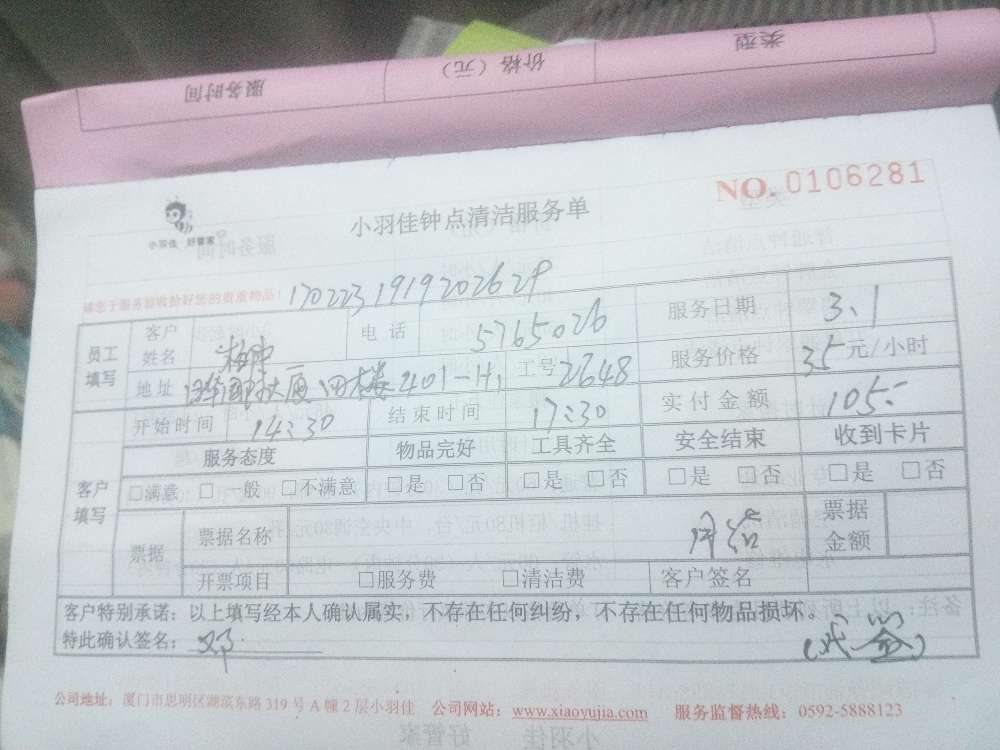 服务时间 价格（元） 类型
NO. 0106281
小羽佳 好管家
小羽佳钟点清洁服务单
请您于服务前收拾好您的贵重物品！ 1702231919202629
员工填写 客户姓名 电话 5765026 服务日期 3.1
地址 大厦四楼401-H 工号 2648 服务价格 35元/小时
开始时间 14:30 结束时间 17:30 实付金额 105-
客户填写 服务态度 物品完好 工具齐全 安全结束 收到卡片
□满意 □一般 □不满意 □是 □否 □是 □否 □是 □否 □是 □否
票据 票据名称 月结 票据金额
开票项目 □服务费 □清洁费 客户签名
客户特别承诺：以上填写经本人确认属实，不存在任何纠纷，不存在任何物品损坏。
特此确认签名：邓 (代签)
公司地址：厦门市思明区湖滨东路319号A幢2层小羽佳 公司网站：www.xiaoyujia.com 服务监督热线：0592-5888123